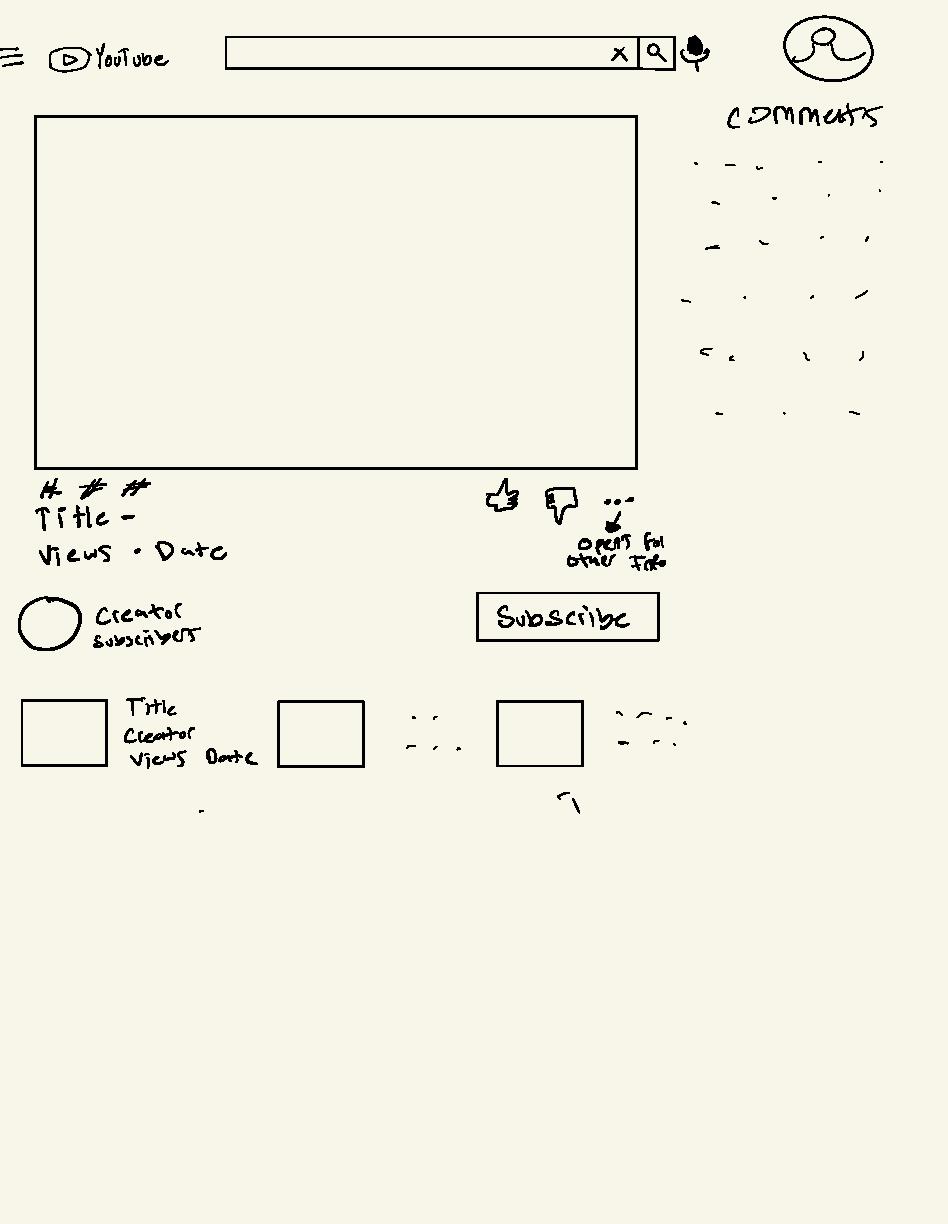 YouTube
X
comments
# # #
Title -
Views • Date
...
opens for
other Info
Creator
subscribers
Subscribe
Title
Creator
Views Date